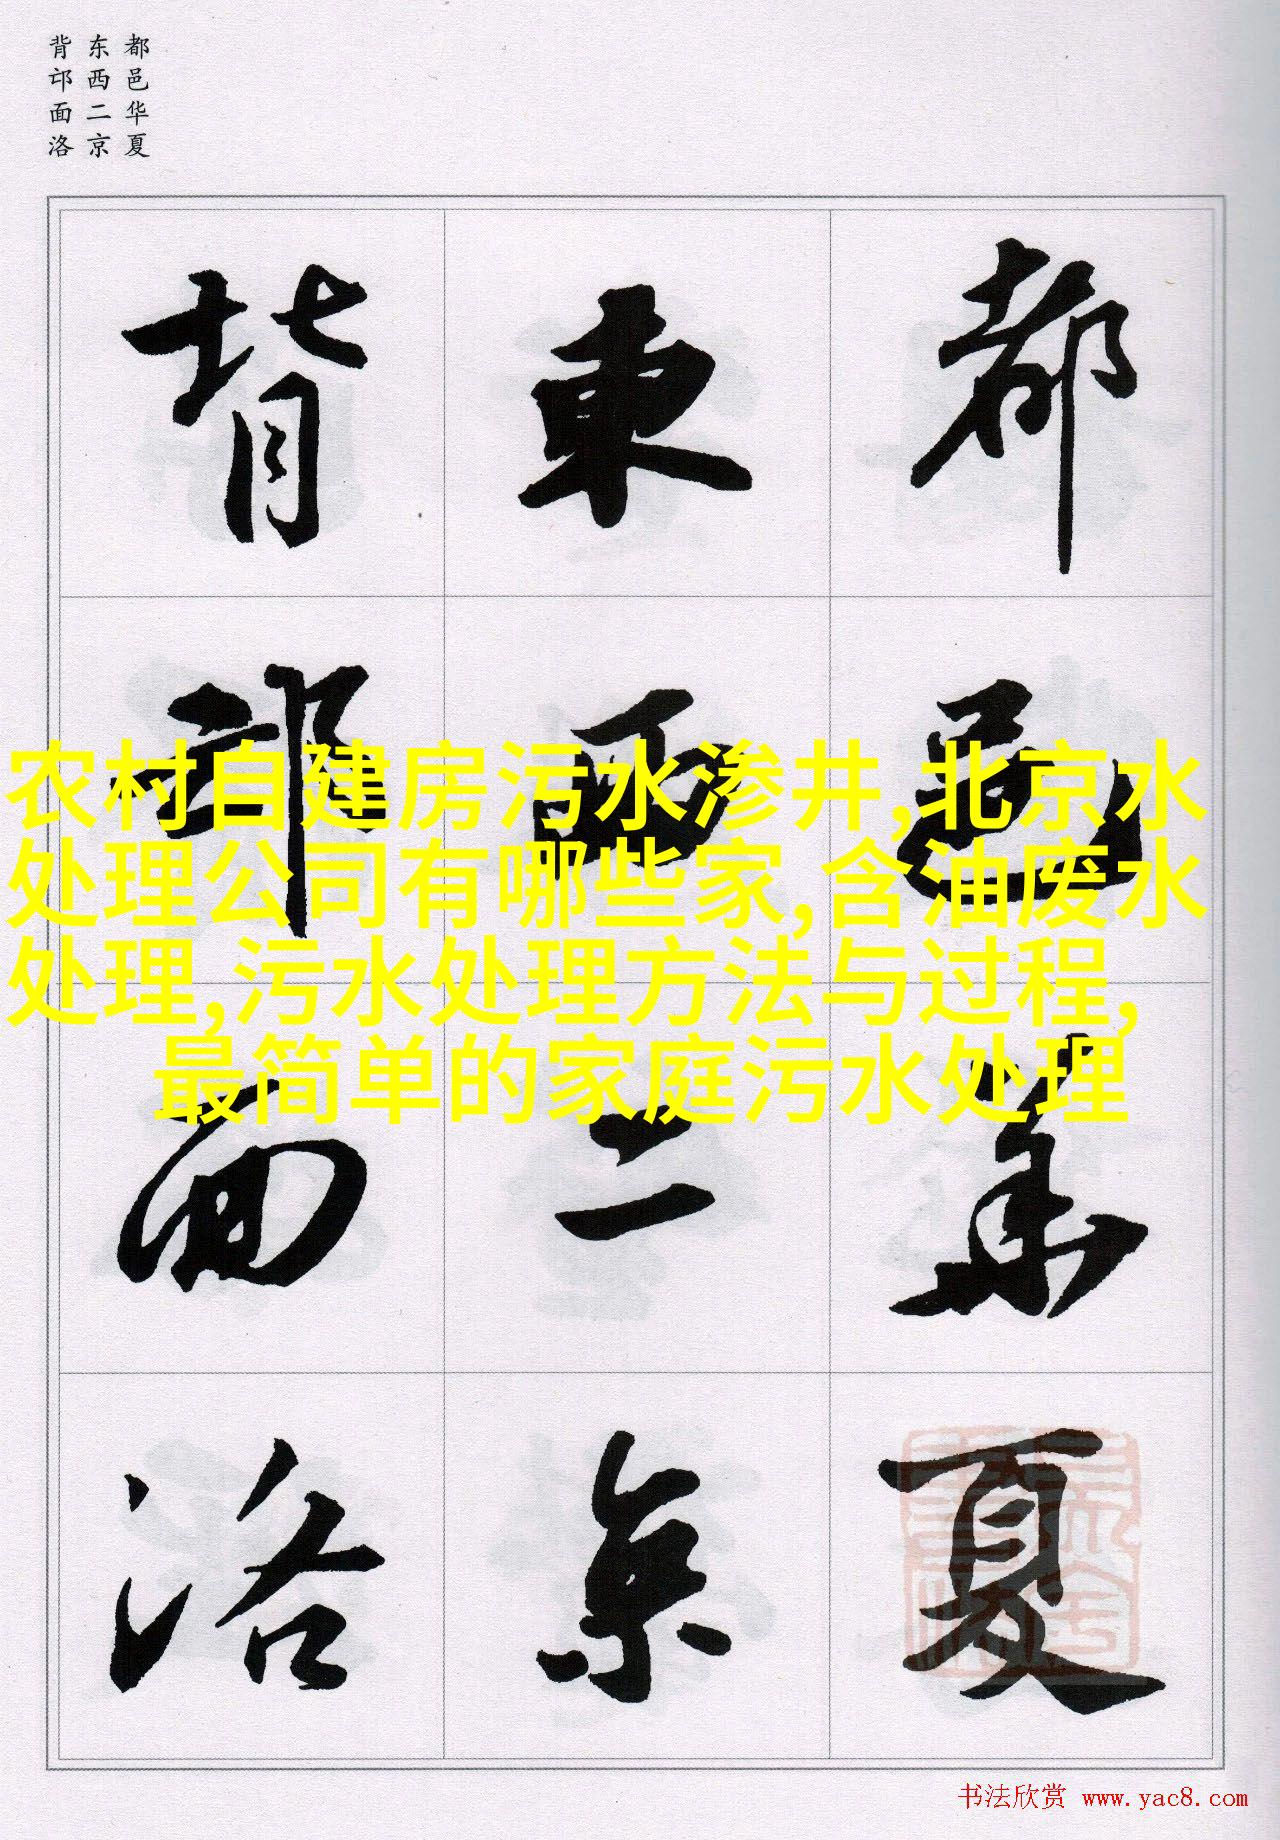 都邑华夏
东西二京
背邙面洛
都邑華夏
東西二京
背邙面洛
农村自建房污水渗井,北京水
处理公司有哪些家,含油废水
处理,污水处理方法与过程,
最简单的家庭污水处理
书法欣赏 www.yac8.com